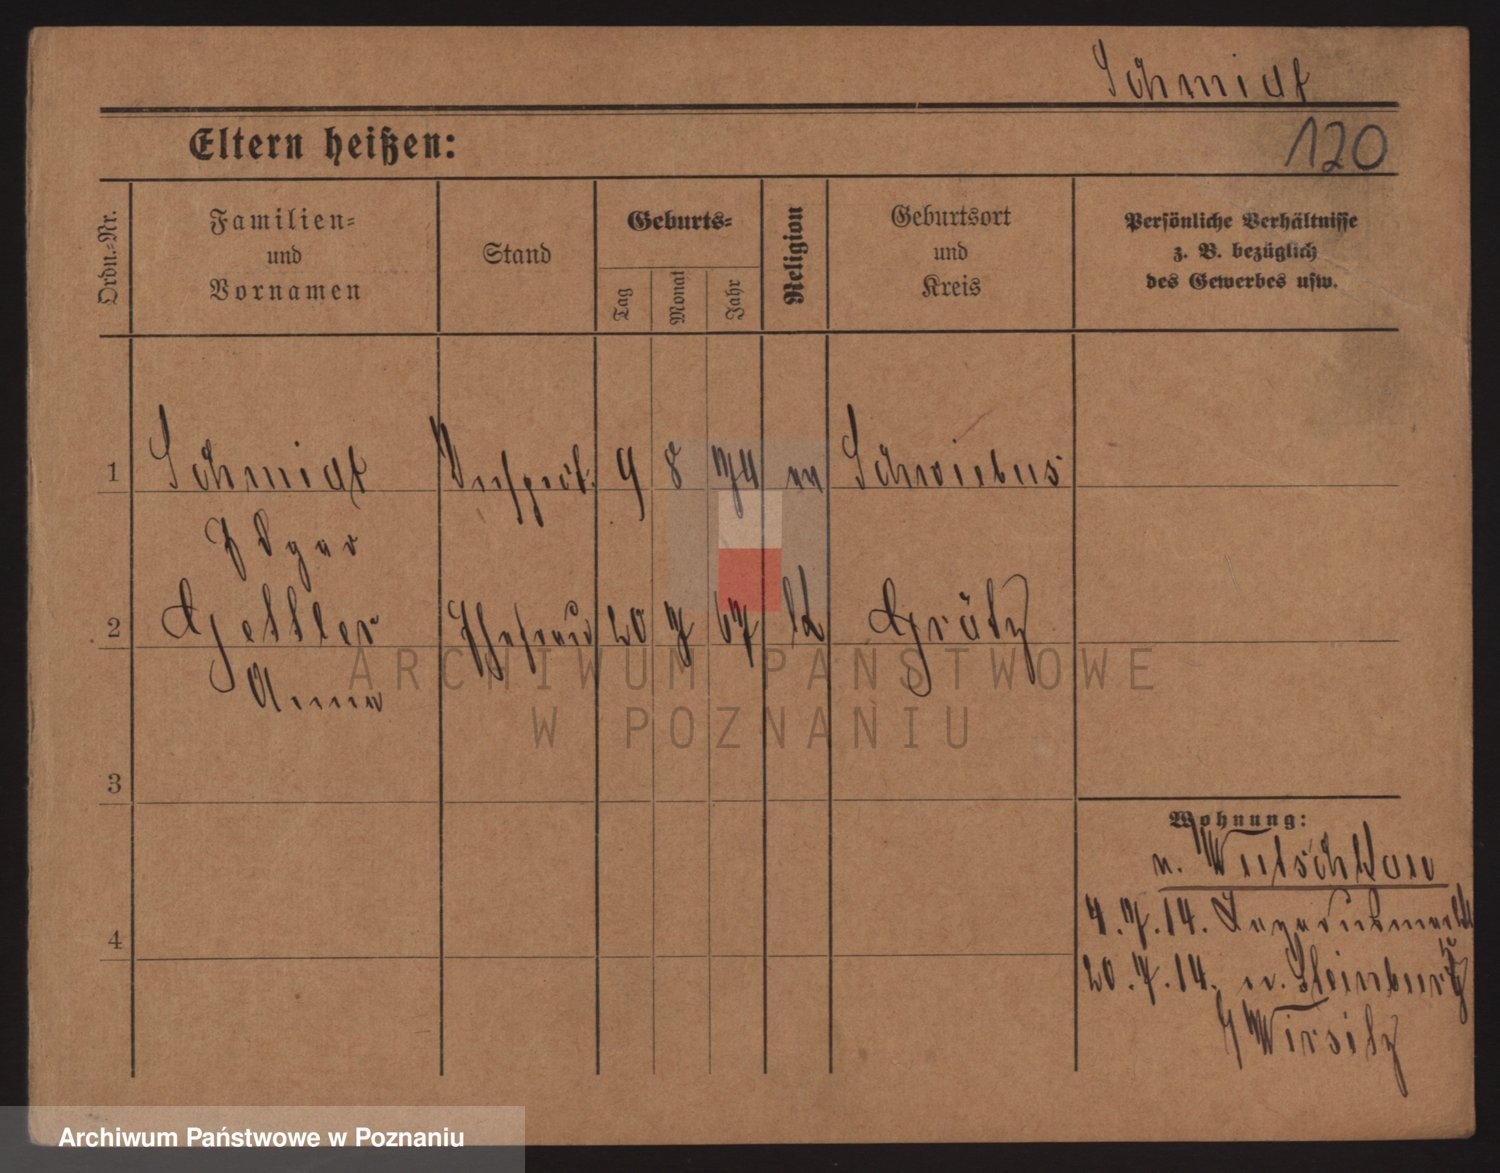 Schmidt
Eltern heißen:
120
Ordn.-Nr.
Familien-
und
Vornamen
Stand
Geburts-
Tag
Monat
Jahr
Religion
Geburtsort
und
Kreis
Persönliche Verhältnisse
z. B. bezüglich
des Gewerbes usw.
1 Schmidt 9 8 74 Schwiebus
Edgar
2 Ehefrau 20 7 67 k Grätz
Anna
ARCHIWUM PAŃSTWOWE
W POZNANIU
3
Wohnung:
n.
4.7.14.
4
20.7.14. n.
Wirsitz
Archiwum Państwowe w Poznaniu